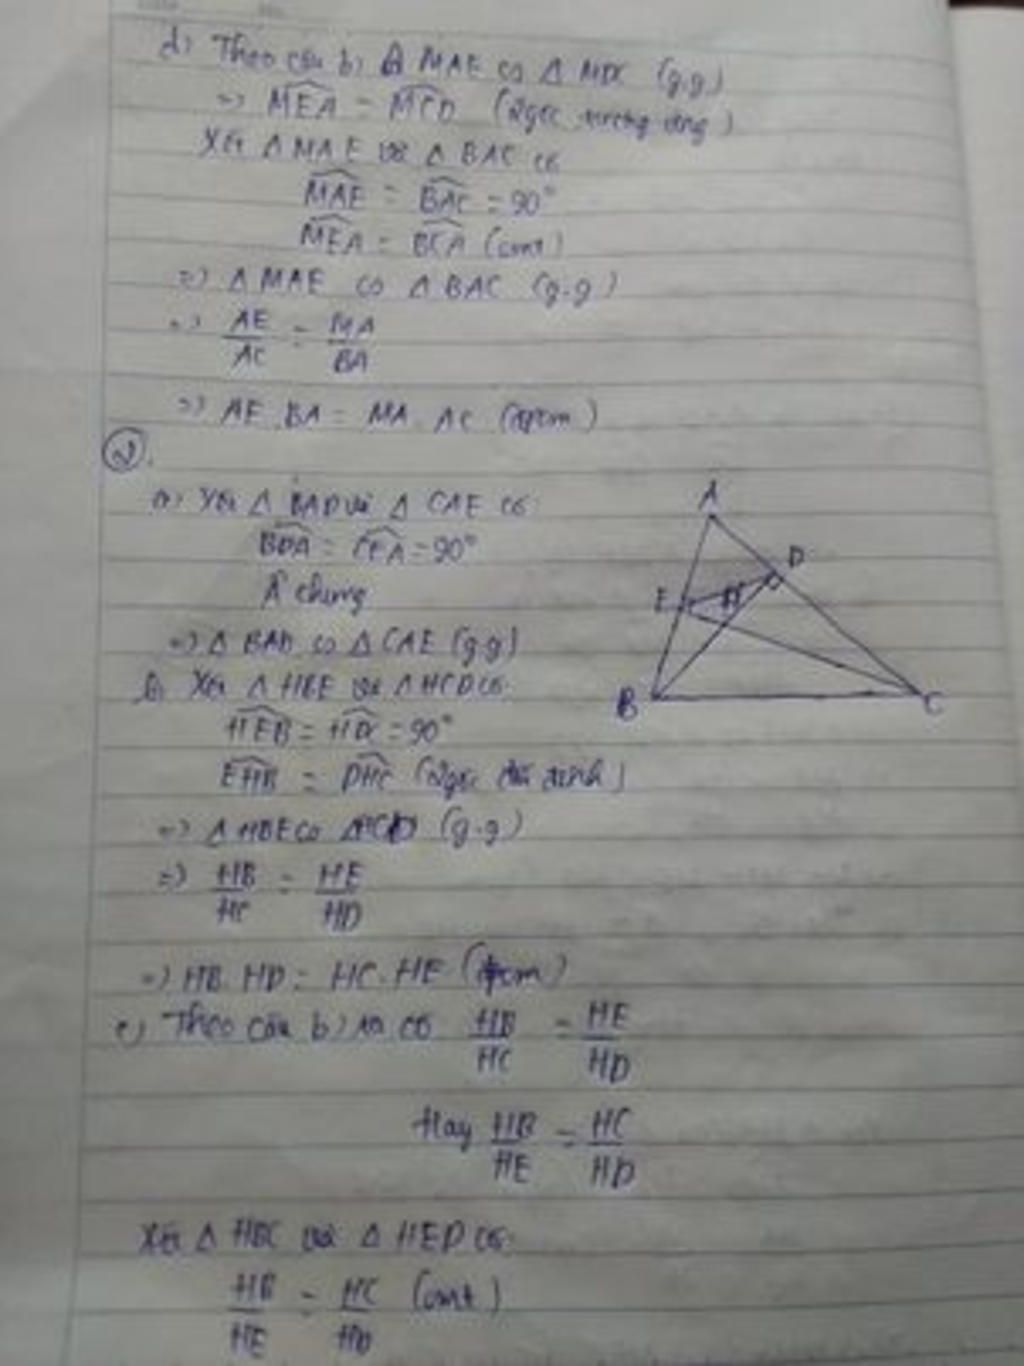 d) Theo câu b) Δ MAE ∽ Δ MDC (g.g)
=> MEA = MCD (2 góc tương ứng)
Xét Δ MAE và Δ BAC có
MAE = BAC = 90°
MEA = BCA (cmt)
=> Δ MAE ∽ Δ BAC (g.g)
=> AE/AC = MA/BA
=> AE . BA = MA . AC (đpcm)
2.
a) Xét Δ BAD và Δ CAE có
BDA = CEA = 90°
Â chung
=> Δ BAD ∽ Δ CAE (g.g)
b) Xét Δ HBE và Δ HCD có
HEB = HDC = 90°
EHB = DHC (2 góc đối đỉnh)
=> Δ HBE ∽ Δ HCD (g.g)
=> HB/HC = HE/HD
=> HB. HD = HC. HE (đpcm)
c) Theo câu b) ta có HB/HC = HE/HD
Hay HB/HE = HC/HD
Xét Δ HBC và Δ HED có
HB/HE = HC/HD (cmt)
A
D
E
H
B
C